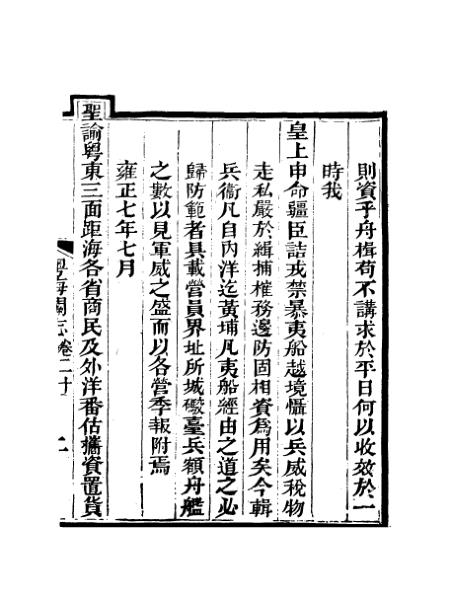 則資乎舟楫苟不講求於平日何以收效於一
時我
皇上申命疆臣詰戎禁暴夷船越境懾以兵威稅物
走私嚴於緝捕榷務邊防固相資為用矣今輯
兵衞凡自內洋迄黃埔凡夷船經由之道之必
歸防範者具載營員界址所城礮臺兵額舟艦
之數以見軍威之盛而以各營季報附焉
雍正七年七月
聖諭粵東三面距海各省商民及外洋番估攜資置貨
粵海關志 卷二十 二